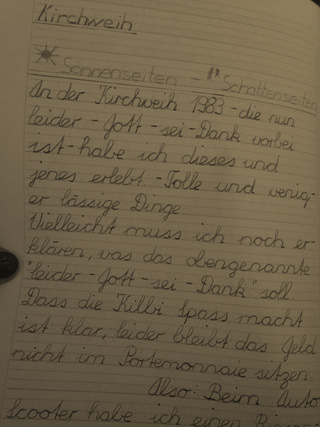 Kirchweih
Sonnenseiten - Schattenseiten
An der Kirchweih 1983 - die nun
leider - Gott - sei - Dank vorbei
ist - habe ich dieses und
jenes erlebt - Tolle und wenig-
er lässige Dinge.
Vielleicht muss ich noch er-
klären, was das obengenannte
"leider - Gott - sei - Dank" soll.
Dass die Kilbi Spass macht
ist klar, leider bleibt das Geld
nicht im Portemonnaie sitzen.
Also: Beim Auto
Scooter habe ich einen